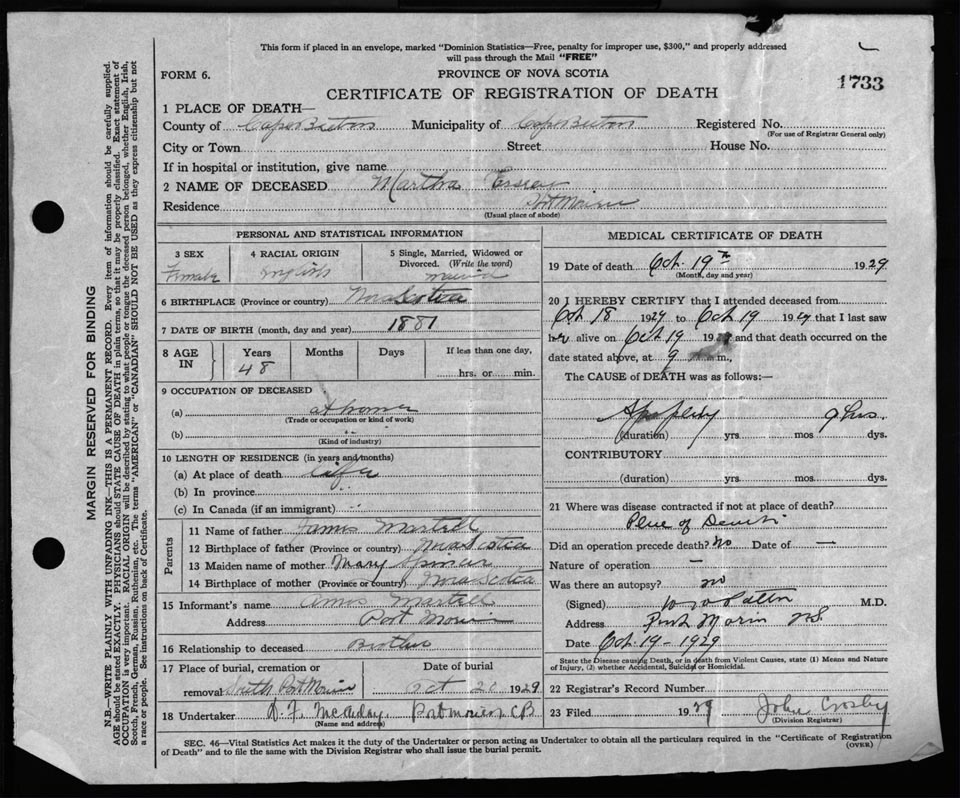 This form if placed in an envelope, marked "Dominion Statistics—Free, penalty for improper use, $300," and properly addressed
will pass through the Mail "FREE"
FORM 6.
PROVINCE OF NOVA SCOTIA
1733
CERTIFICATE OF REGISTRATION OF DEATH
1 PLACE OF DEATH—
County of Cape Breton Municipality of Cape Breton Registered No.
(For use of Registrar General only)
City or Town Street House No.
If in hospital or institution, give name
2 NAME OF DECEASED Martha
Residence Port Morien
(Usual place of abode)
PERSONAL AND STATISTICAL INFORMATION
3 SEX 4 RACIAL ORIGIN 5 Single, Married, Widowed or
Divorced. (Write the word)
Female English married
6 BIRTHPLACE (Province or country) Nova Scotia
7 DATE OF BIRTH (month, day and year) 1881
8 AGE IN Years Months Days If less than one day,
48 hrs. or min.
9 OCCUPATION OF DECEASED
(a) at home
(Trade or occupation or kind of work)
(b)
(Kind of industry)
10 LENGTH OF RESIDENCE (in years and months)
(a) At place of death Life
(b) In province "
(c) In Canada (if an immigrant) "
Parents
11 Name of father James Martell
12 Birthplace of father (Province or country) Nova Scotia
13 Maiden name of mother Mary Spencer
14 Birthplace of mother (Province or country) Nova Scotia
15 Informant's name Amos Martell
Address Port Morien
16 Relationship to deceased Brother
17 Place of burial, cremation or Date of burial
removal South Port Morien Oct 20 1929
18 Undertaker D. F. Port Morien C B
(Name and address)
MEDICAL CERTIFICATE OF DEATH
19 Date of death Oct. 19th 1929
(Month, day and year)
20 I HEREBY CERTIFY that I attended deceased from
Oct 18 1929 to Oct 19 1929 that I last saw
her alive on Oct 19 1929 and that death occurred on the
date stated above, at 9 m.,
The CAUSE of DEATH was as follows:—
Apoplexy 9 hrs.
(duration) yrs mos dys.
CONTRIBUTORY
(duration) yrs. mos dys.
21 Where was disease contracted if not at place of death?
Place of Death
Did an operation precede death? No Date of —
Nature of operation —
Was there an autopsy? no
(Signed) M.D.
Address Port Morien N.S.
Date Oct. 19 - 1929
State the Disease causing Death, or in death from Violent Causes, state (1) Means and Nature
of Injury, (2) whether Accidental, Suicidal or Homicidal.
22 Registrar's Record Number
23 Filed 1929 John Crosby
(Division Registrar)
SEC. 46—Vital Statistics Act makes it the duty of the Undertaker or person acting as Undertaker to obtain all the particulars required in the "Certificate of Registration
of Death" and to file the same with the Division Registrar who shall issue the burial permit.
(OVER)
MARGIN RESERVED FOR BINDING
N.B.—WRITE PLAINLY WITH UNFADING INK—THIS IS A PERMANENT RECORD. Every item of information should be carefully supplied.
AGE should be stated EXACTLY. PHYSICIANS should STATE CAUSE OF DEATH in plain terms, so that it may be properly classified. Exact statement of
OCCUPATION is very important. RACIAL ORIGIN will be described by stating to what people or tongue the deceased person belonged, whether English, Irish,
Scotch, French, German, Russian, Ruthenian, etc. The terms "AMERICAN" or "CANADIAN" SHOULD NOT BE USED as they express citizenship but not
a race or people. See instructions on back of Certificate.